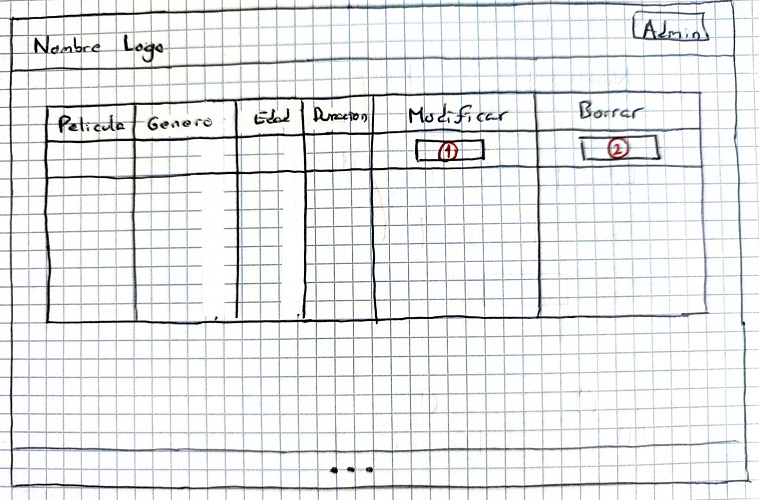 Nombre Logo
Admin
Pelicula Genero Edad Duracion Modificar Borrar
1 2
...